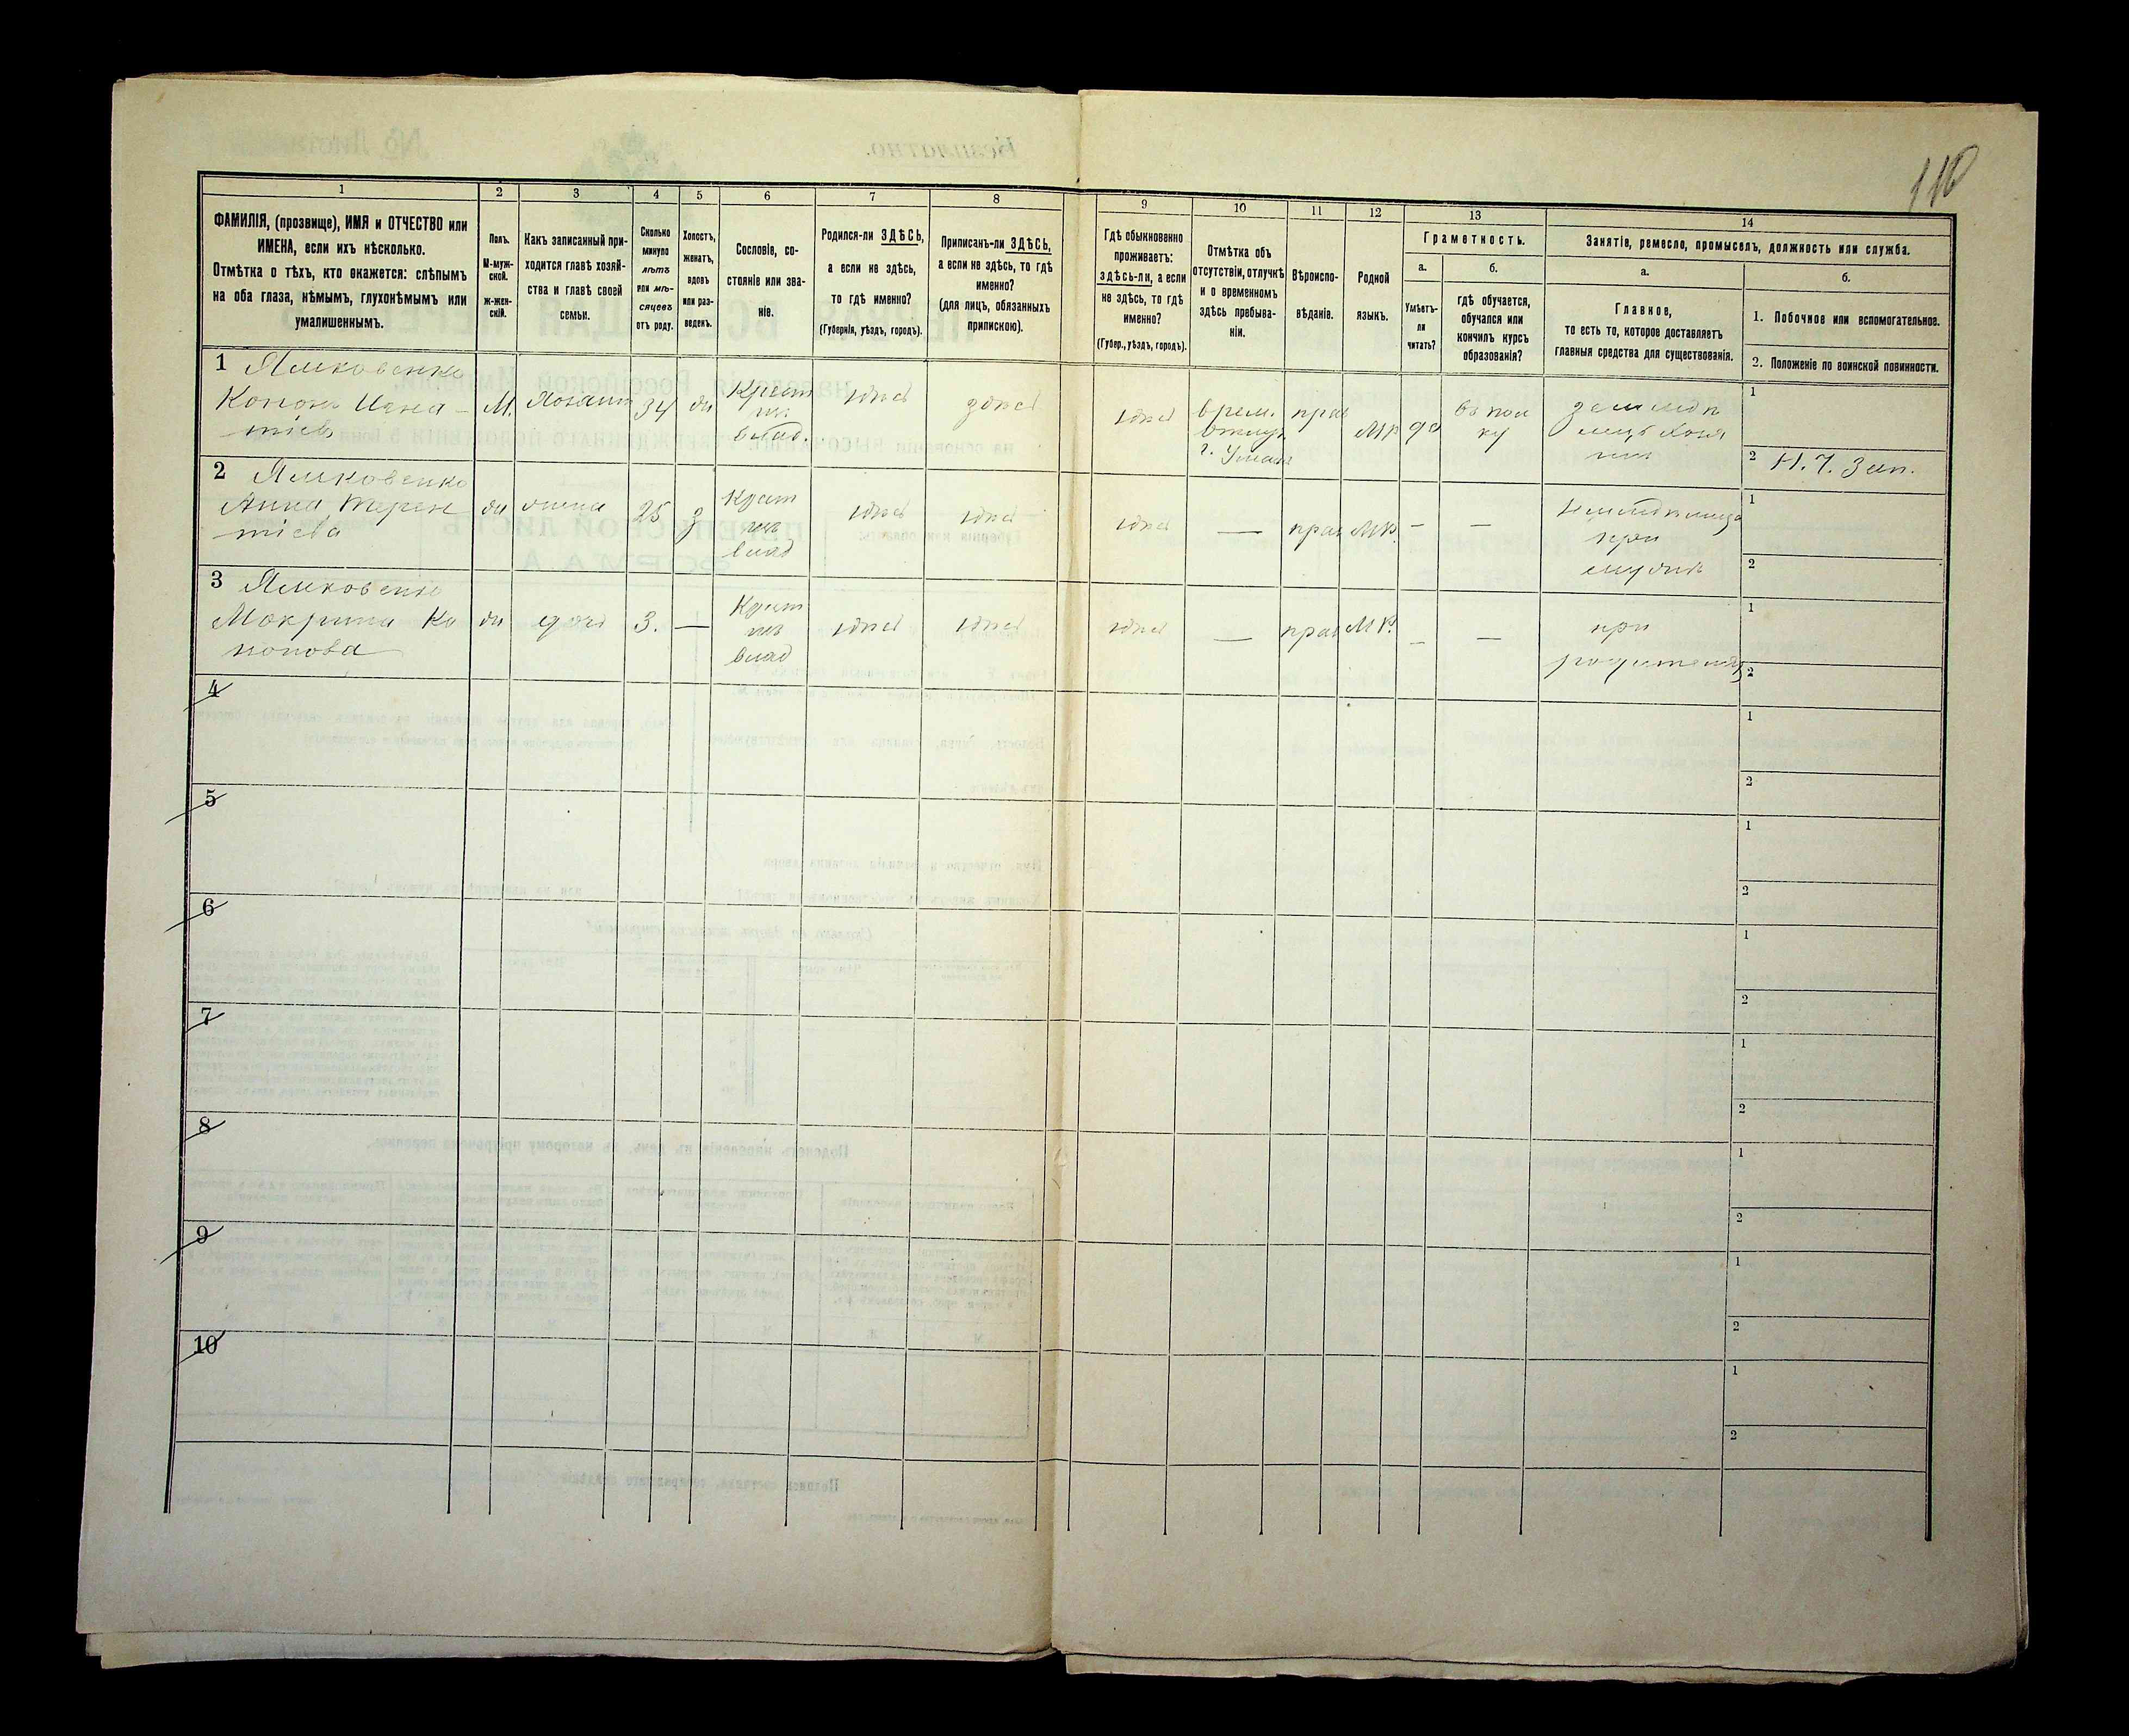 110
1
2
3
4
5
6
7
8
9
10
11
12
13
14
ФАМИЛІЯ, (прозвище), ИМЯ и ОТЧЕСТВО или
ИМЕНА, если ихъ нѣсколько.
Отмѣтка о тѣхъ, кто окажется: слѣпымъ
на оба глаза, нѣмымъ, глухонѣмымъ или
умалишеннымъ.
Полъ.
М-муж-
ской.
ж-жен-
скій.
Какъ записанный при-
ходится главѣ хозяй-
ства и главѣ своей
семьи.
Сколько
минуло
лѣтъ
или мѣ-
сяцевъ
отъ роду.
Холостъ,
женатъ,
вдовъ
или раз-
веденъ.
Сословіе, со-
стояніе или зва-
ніе.
Родился-ли ЗДѢСЬ,
а если не здѣсь,
то гдѣ именно?
(Губернія, уѣздъ, городъ).
Приписанъ-ли ЗДѢСЬ,
а если не здѣсь, то гдѣ
именно?
(для лицъ, обязанныхъ
припискою).
Гдѣ обыкновенно
проживаетъ:
здѣсь-ли, а если
не здѣсь, то гдѣ
именно?
(Губер., уѣздъ, городъ).
Отмѣтка объ
отсутствіи, отлучкѣ
и о временномъ
здѣсь пребыва-
ніи.
Вѣроиспо-
вѣданіе.
Родной
языкъ.
Грамотность.
а.
Умѣетъ-
ли
читать?
б.
гдѣ обучается,
обучался или
кончилъ курсъ
образованія?
Занятіе, ремесло, промыселъ, должность или служба.
а.
Главное,
то есть то, которое доставляетъ
главныя средства для существованія.
б.
1. Побочное или вспомогательное.
2. Положеніе по воинской повинности.
1 Ямковенко
Кононъ Игна-
тіевъ
М.
хозяин
34
Крест
влад.
здѣсь
здѣсь
здѣсь
врем.
г. Умань
прав
МР
да
въ пол
ку
1
2 Н. Ч. Зап.
2 Ямковенко
Анна Терен
тіева
жена
25
Крест
влад
здѣсь
здѣсь
здѣсь
—
прав
МР.
–
—
при
мужѣ
1
2
3 Ямковенко
Макрина Ко
нонова
дочь
3.
—
Крест
влад
здѣсь
здѣсь
здѣсь
—
прав
МР.
–
—
при
родителях
1
2
4
1
2
5
1
2
6
1
2
7
1
2
8
1
2
9
1
2
10
1
2